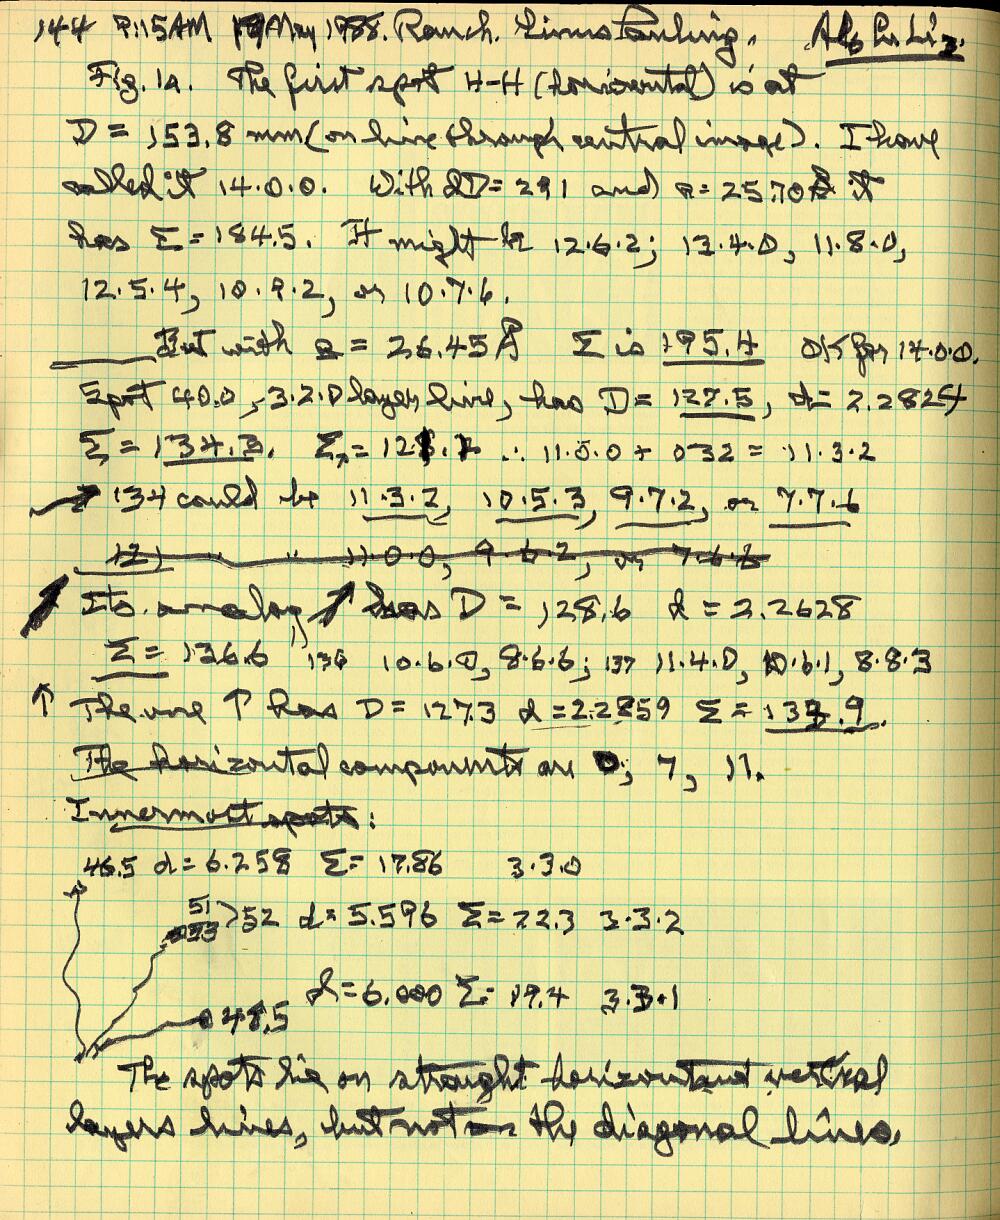 144 9:15AM 19 May 1988. Ranch. Linus Pauling. Al6 Cu Li3.
Fig. 1a. The first spot H-H (horizontal) is at
D = 153.8 mm (on line through central image). I have
called it 14.0.0. With 2D = 291 and a = 25.70 Å it
has Σ = 184.5. It might be 12.6.2; 13.4.0, 11.8.0,
12.5.4, 10.9.2, or 10.7.6.
But with a = 26.45 Å Σ is 195.4 OK for 14.0.0.
Spot 40.0, 3.2.0 layer line, has D = 127.5, d = 2.2824
Σ = 134.3. = 121. ∴ 11.0.0 + 032 = 11.3.2
134 could be 11.3.2, 10.5.3, 9.7.2, or 7.7.6
121 " " 11.0.0, 9.6.2, or 7.6.6
Its analog ↗ has D = 128.6 d = 2.2628
Σ = 136.6 136 10.6.0, 8.6.6; 137 11.4.0, 10.6.1, 8.8.3
↑ The one ↑ has D = 127.3 d = 2.2859 Σ = 133.9.
The horizontal components are 0, 7, 11.
Innermost spots:
46.5 d = 6.258 Σ = 17.86 3.3.0
51
53 >52 d = 5.596 Σ = 22.3 3.3.2
d = 6.000 Σ = 19.4 3.3.1
48.5
The spots lie on straight horizontal and vertical
layers lines, but not on the diagonal lines.